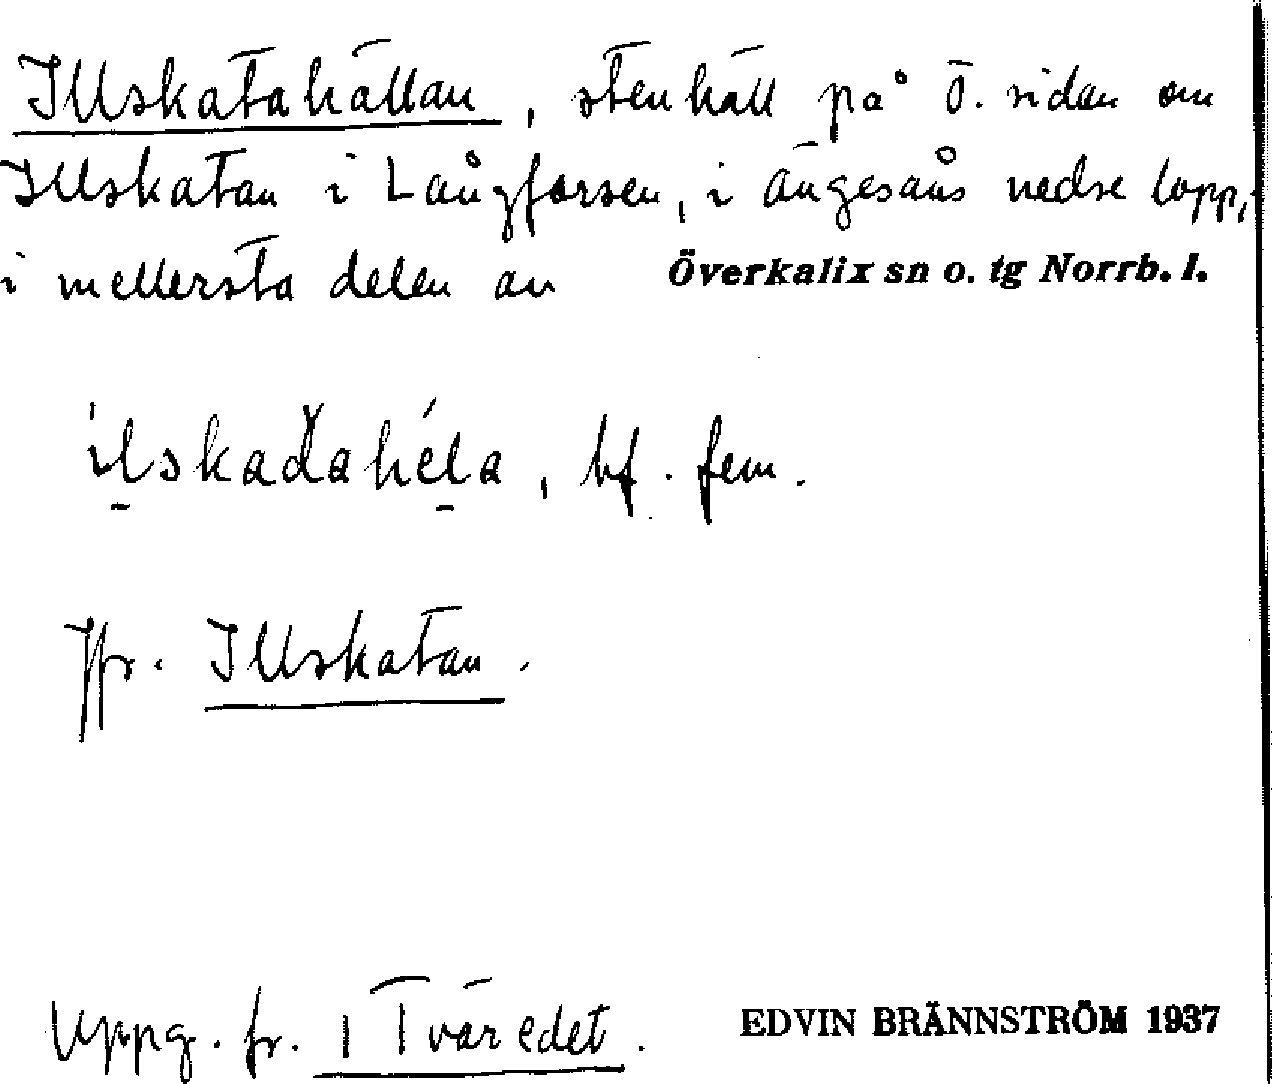 Illskatahällan, stenhäll på ö. sidan om
Illskatan i Långforsen, i Ängesåns nedre lopp,
i mellersta delen av Överkalix sn o. tg Norrb. l.
ilskadahéla, bf. fem.
Jfr. Illskatan.
Uppg. fr. 1 Tväredet. EDVIN BRÄNNSTRÖM 1937